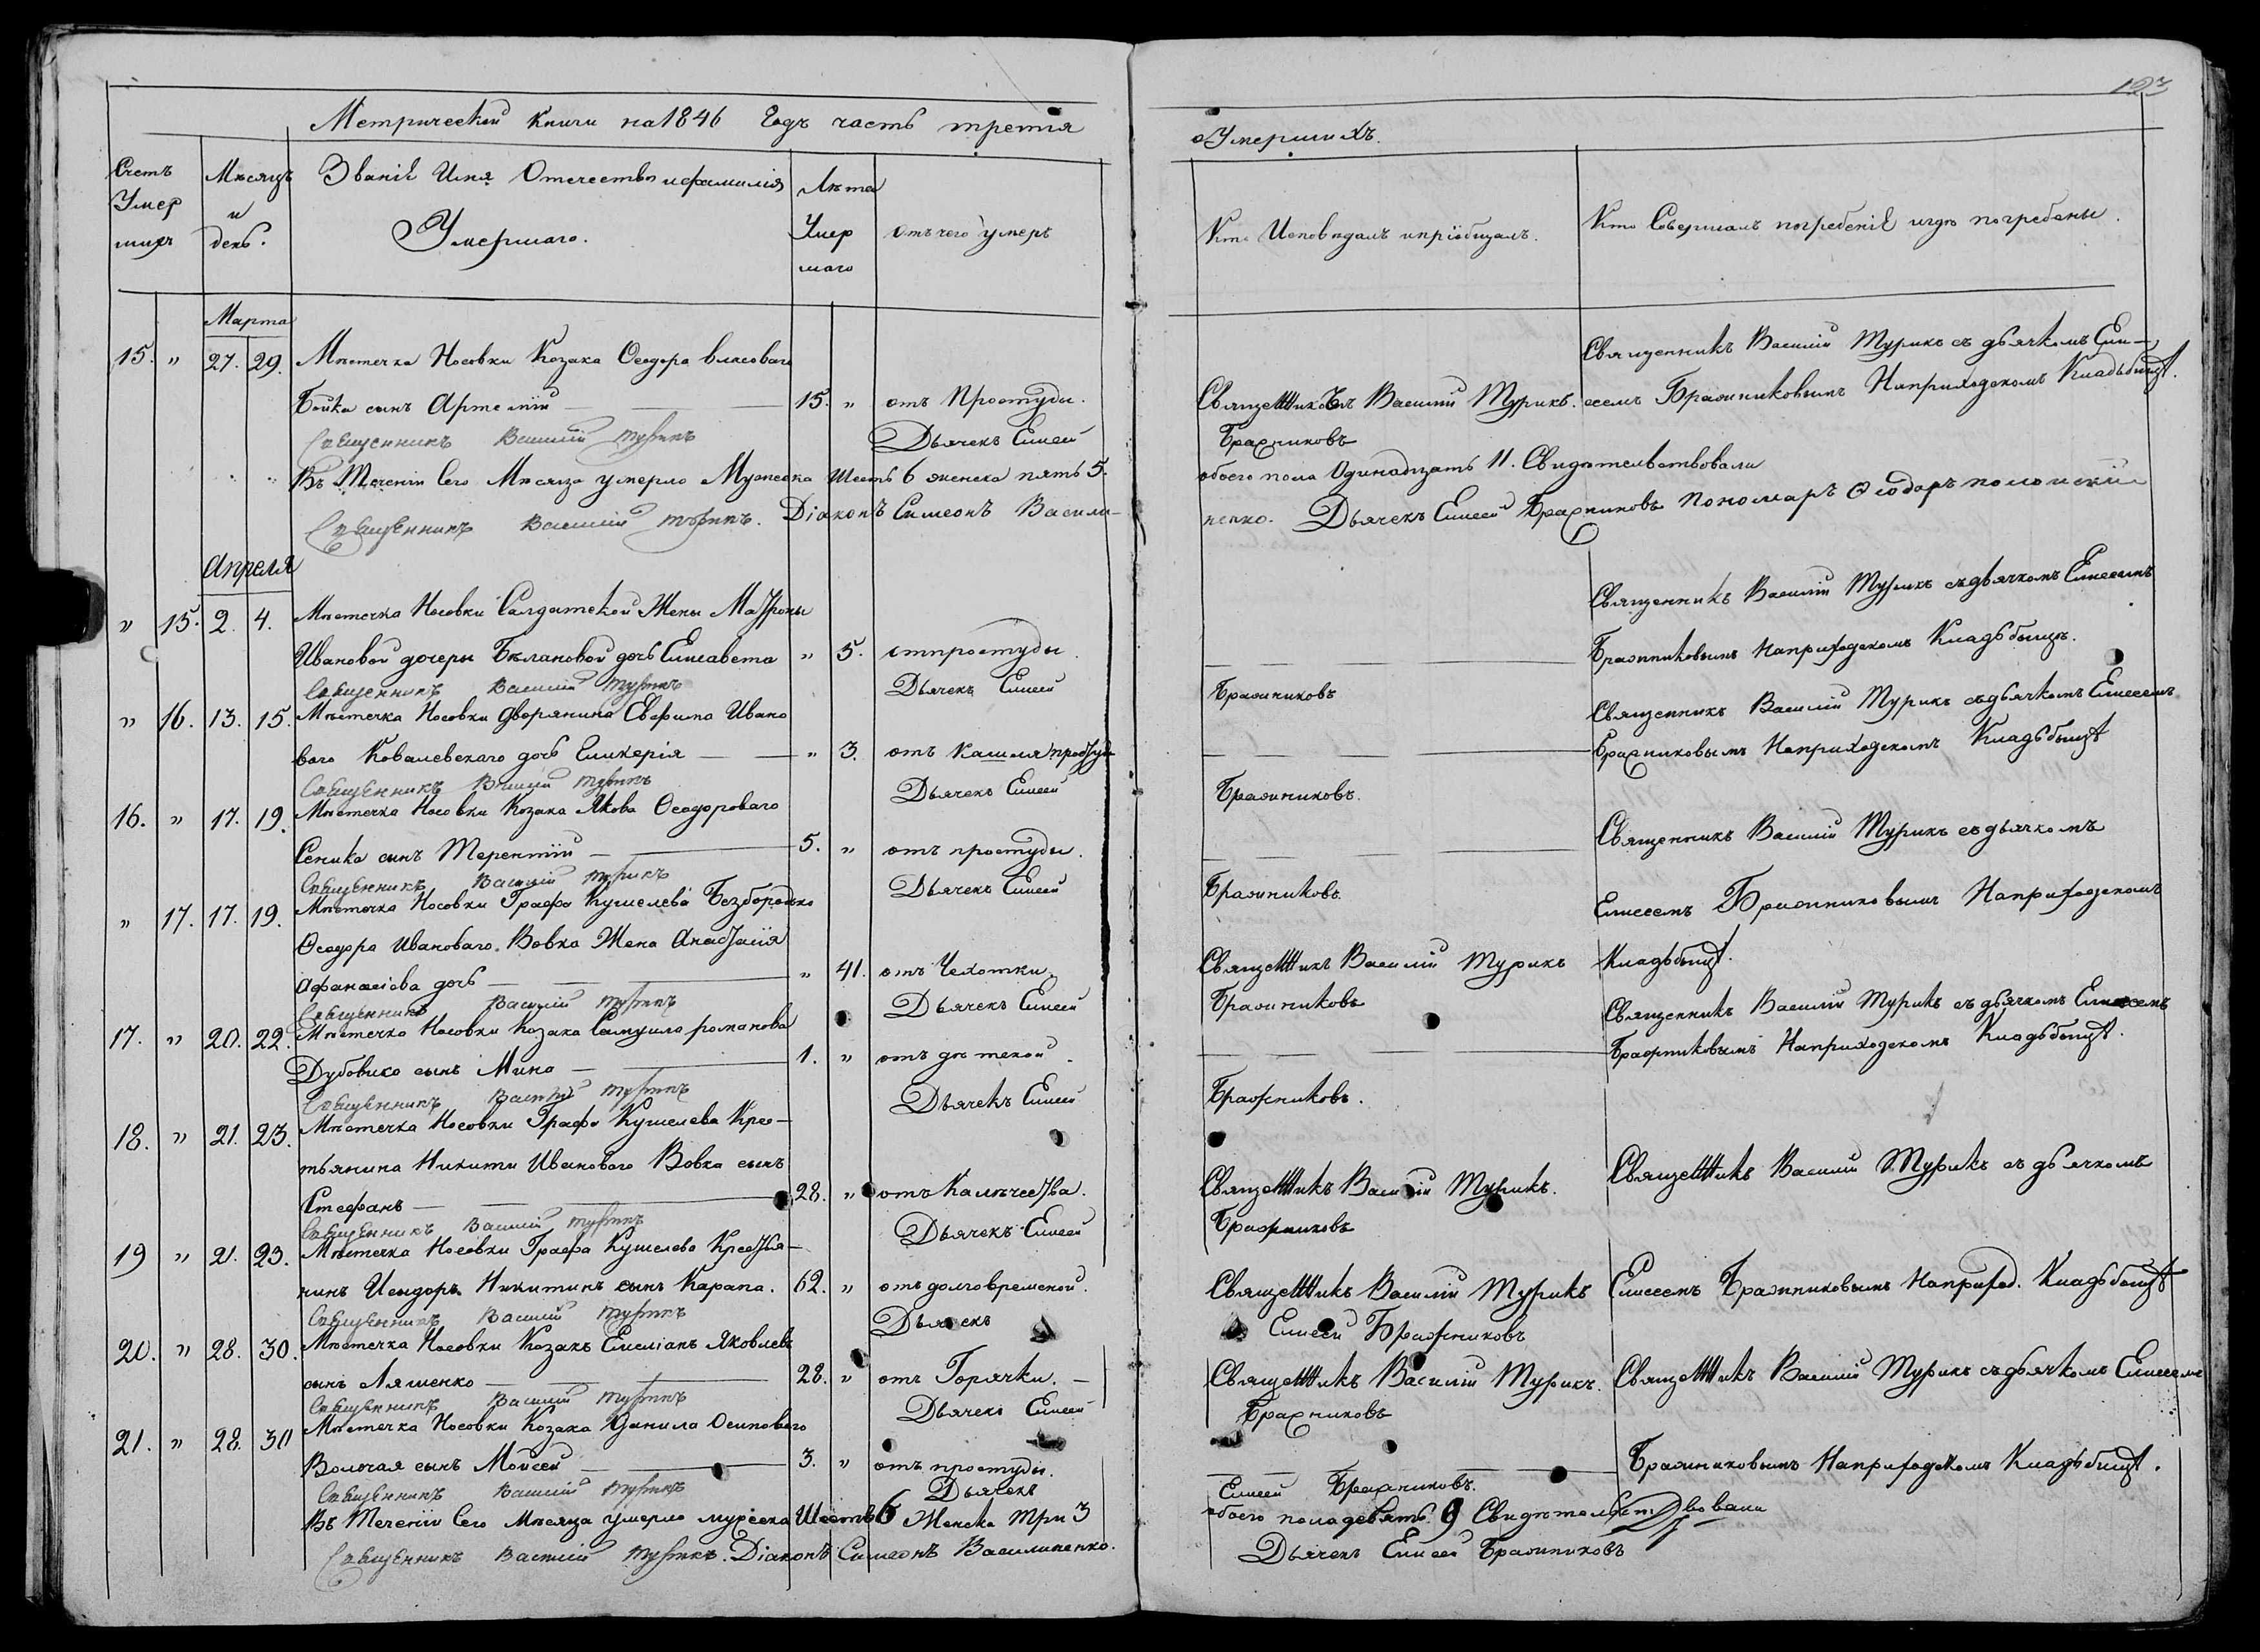 123
Метрической книги на 1846 Годъ часть третія
о Умершихъ.
Счетъ Умер шихъ
Мѣсяцъ и день.
Званіе Имя Отечество и фамилія Умершаго.
Лѣта Умер шаго
отъ чего умеръ
Кто Исповѣдалъ и пріобщалъ.
Кто Совершалъ погребеніе и гдѣ погребены.
Марта
15. " 27. 29. Мѣстечка Носовки Козака Ѳеодора Власоваго
Священникъ Василій Турикъ съ дьячкомъ Ели-
Бойка сынъ Артемій — 15. " отъ Простуды.
Священникъ Василій Турикъ. сеемъ Бражниковымъ На приходскомъ Кладьбищѣ.
Священникъ Василій Турикъ Дьячекъ Елисей Бражниковъ
Въ Теченіи Сего Мѣсяца умерло Мужеска Шесть 6 женска пять 5.
обоего пола Одинадцать 11. Свидѣтельствовали
Священникъ Василій Турикъ. Діаконъ Симеонъ Васили-
ненко. Дьячекъ Елисей Бражниковъ Пономаръ Ѳеодоръ
Апреля
" 15. 2. 4. Мѣстечка Носовки Салдатской Жены Матроны
Священникъ Василій Турикъ съ дьячкомъ Елисеемъ
Ивановой дочеры Белановой дочь Елисавета " 5. от простуды.
Бражниковымъ На приходскомъ Кладьбищѣ.
Священникъ Василій Турикъ Дьячекъ Елисей Бражниковъ
" 16. 13. 15. Мѣстечка Носовки Дворянина Евфима Ивано
Священникъ Василій Турикъ съ дьячкомъ Елисеемъ
ваго Ковалевскаго дочь Гликерія — " 3. отъ Кашля простуд
Бражниковымъ На приходскомъ Кладьбищѣ
Священникъ Василій Турикъ Дьячекъ Елисей Бражниковъ.
16. " 17. 19. Мѣстечка Носовки Козака Якова Ѳеодороваго
Священникъ Василій Турикъ съ дьячкомъ
Сеника сынъ Терентій — 5. " отъ простуды.
Священникъ Василій Турикъ Дьячекъ Елисей Бражниковъ.
" 17. 17. 19. Мѣстечка Носовки Графа Кушелева Безбородко
Елисеемъ Бражниковымъ На приходскомъ
Ѳеодора Иванового Вовка Жена Анастасія
Афанасіова дочь — " 41. отъ Чехотки.
Священникъ Василій Турикъ Кладьбищѣ.
Священникъ Василій Турикъ Дьячекъ Елисей Бражниковъ
17. " 20. 22. Мѣстечка Носовки Козака Самуила романова
Священникъ Василій Турикъ съ дьячкомъ Елисеемъ
Дубовико сынъ Мина — 1. " отъ дѣтской.
Бражниковымъ На приходскомъ Кладьбищѣ.
Священникъ Василій Турикъ Дьячекъ Елисей Бражниковъ.
18. " 21. 23. Мѣстечка Носовки Графа Кушелева Крес-
тьянина Никиты Иванового Вовка сынъ
Стефанъ — 28. " отъ Калѣчества.
Священникъ Василій Турикъ. Священникъ Василій Турикъ съ дьячкомъ
Священникъ Василій Турикъ Дьячекъ Елисей Бражниковъ
19 " 21. 23. Мѣстечка Носовки Графа Кушелева Крестья-
нинъ Исидоръ Никитинъ сынъ Карапа. 62. " отъ долговременной.
Священникъ Василій Турикъ Елисеемъ Бражниковымъ На приход. Кладьбищѣ
Священникъ Василій Турикъ Дьячекъ Елисей Бражниковъ
20. " 28. 30. Мѣстечка Носовки Козакъ Емеліанъ Яковлевъ
сынъ Ляшенко — 28. " отъ Горячки. —
Священникъ Василій Турикъ. Священникъ Василій Турикъ съ дьячкомъ Елисеемъ
Священникъ Василій Турикъ Дьячекъ Елисей Бражниковъ
21. " 28. 30 Мѣстечка Носовки Козака Данила Осиповаго
Волочая сынъ Моисей — 3. " отъ простуды.
Бражниковымъ На приходскомъ Кладьбищѣ.
Священникъ Василій Турикъ Дьячекъ Елисей Бражниковъ.
Въ Теченіи Сего Мѣсяца умерло мужеска Шесть 6 Женска Три 3
обоего пола девять. 9 Свидѣтельствовали
Священникъ Василій Турикъ. Діаконъ Симеонъ Василиненко.
Дьячекъ Елисей Бражниковъ